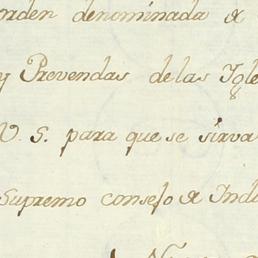 orden denominada de
y Prevendas de las Igle
V. S. para que se sirva
Supremo consejo de Indi